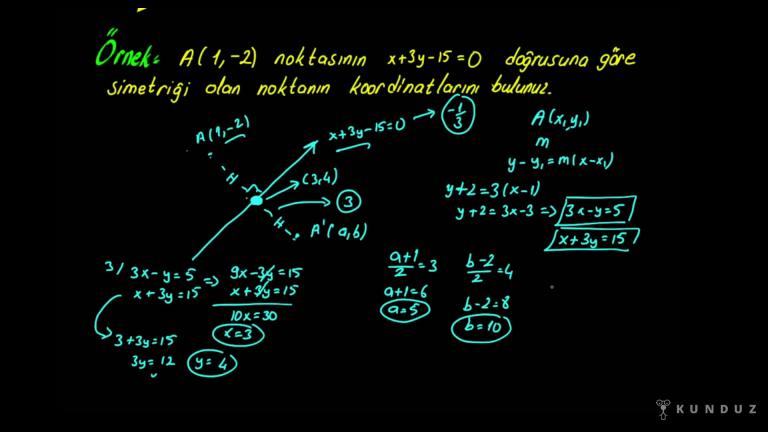 Örnek: A(1,-2) noktasının x+3y-15=0 doğrusuna göre
simetriği olan noktanın koordinatlarını bulunuz.
A(1,-2)
x+3y-15=0 → -1/3
H
(3,4)
3
H
A'(a,b)
A(x₁,y₁)
m
y-y₁=m(x-x₁)
y+2=3(x-1)
y+2=3x-3 => 3x-y=5
x+3y=15
3/ 3x-y=5 => 9x-3y=15
x+3y=15 x+3y=15
10x=30
x=3
3+3y=15
3y=12 y=4
a+1/2=3
a+1=6
a=5
b-2/2=4
b-2=8
b=10
KUNDUZ